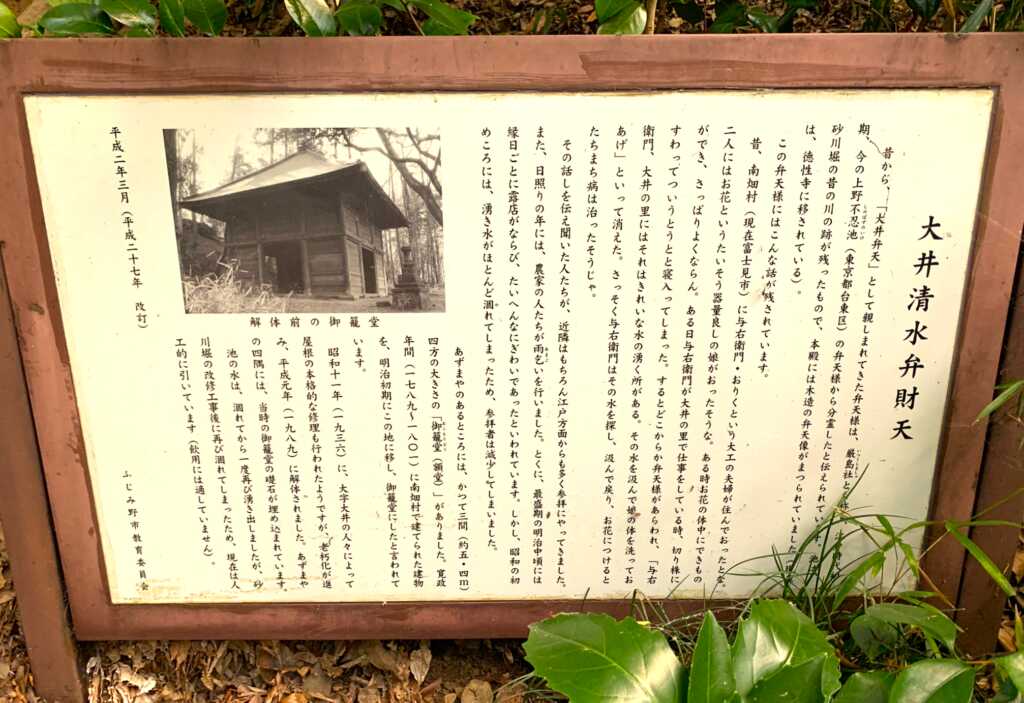 大井清水弁財天
昔から、「大井弁天」として親しまれてきた弁天様は、厳島社と
期、今の上野不忍池（東京都台東区）の弁天様から分霊したと伝えられてい
砂川堀の昔の川の跡が残ったもので、本殿には木造の弁天像がまつられていました
は、徳性寺に移されている）。
この弁天様にはこんな話が残されています。
昔、南畑村（現在富士見市）に与右衛門・おりくという大工の夫婦が住んでおったとな。
二人にはお花というたいそう器量良しの娘がおったそうな。ある時お花の体中にできもの
ができ、さっぱりよくならん。ある日与右衛門が大井の里で仕事をしている時、切り株に
すわってついうとうとと寝入ってしまった。するとどこからか弁天様があらわれ、「与右
衛門、大井の里にはそれはきれいな水の湧く所がある。その水を汲んで娘の体を洗ってお
あげ」といって消えた。さっそく与右衛門はその水を探し、汲んで戻り、お花につけると
たちまち病は治ったそうじゃ。
その話しを伝え聞いた人たちが、近隣はもちろん江戸方面からも多く参拝にやってきました。
また、日照りの年には、農家の人たちが雨乞いを行いました。とくに、最盛期の明治中頃には
縁日ごとに露店がならび、たいへんなにぎわいであったといわれています。しかし、昭和の初
めころには、湧き水がほとんど涸れてしまったため、参拝者は減少してしまいました。
解体前の御籠堂
あずまやのあるところには、かつて三間（約五・四m）
四方の大きさの「御籠堂（額堂）」がありました。寛政
年間（一七八九〜一八〇一）に南畑村で建てられた建物
を、明治初期にこの地に移し、御籠堂にしたと言われて
います。
昭和十一年（一九三六）に、大字大井の人々によって
屋根の本格的な修理も行われたようですが、老朽化が進
み、平成元年（一九八九）に解体されました。あずまや
の四隅には、当時の御籠堂の礎石が埋め込まれています。
池の水は、涸れてから一度再び湧き出しましたが、砂
川堀の改修工事後に再び涸れてしまったため、現在は人
工的に引いています（飲用には適していません）。
平成二年三月（平成二十七年　改訂）
ふじみ野市教育委員会